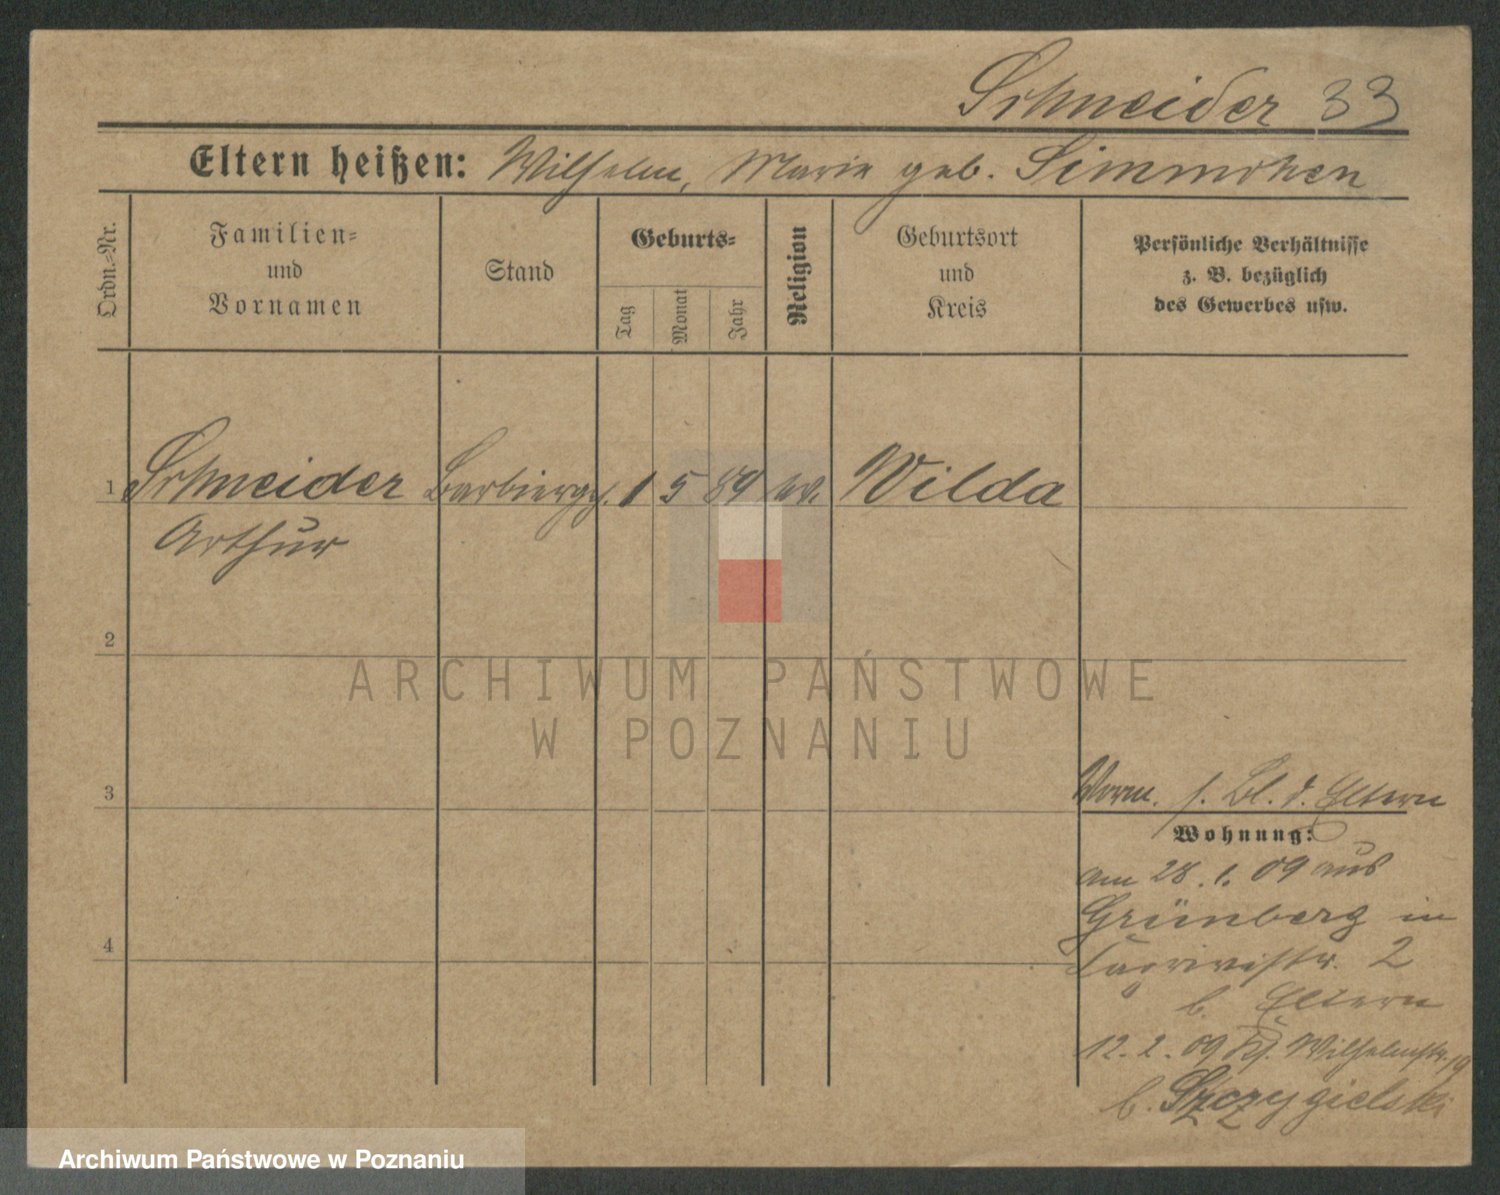 Schneider 33
Eltern heißen: Wilhelm, Marie geb. Simmchen
Ordn.-Nr.
Familien-
und
Vornamen
Stand
Geburts-
Tag
Monat
Jahr
Religion
Geburtsort
und
Kreis
Persönliche Verhältnisse
z. B. bezüglich
des Gewerbes usw.
1 Schneider Barbiergeh. 1 5 89 ev. Wilda
Arthur
2
3
4
Vorm. s. Bl. d. Eltern
Wohnung:
am 28. 1. 09 aus
Grünberg in
2
b. Eltern
12. 2. 09 Wilhelmstr. 19
b. Szczygielski
ARCHIWUM PAŃSTWOWE
W POZNANIU
Archiwum Państwowe w Poznaniu